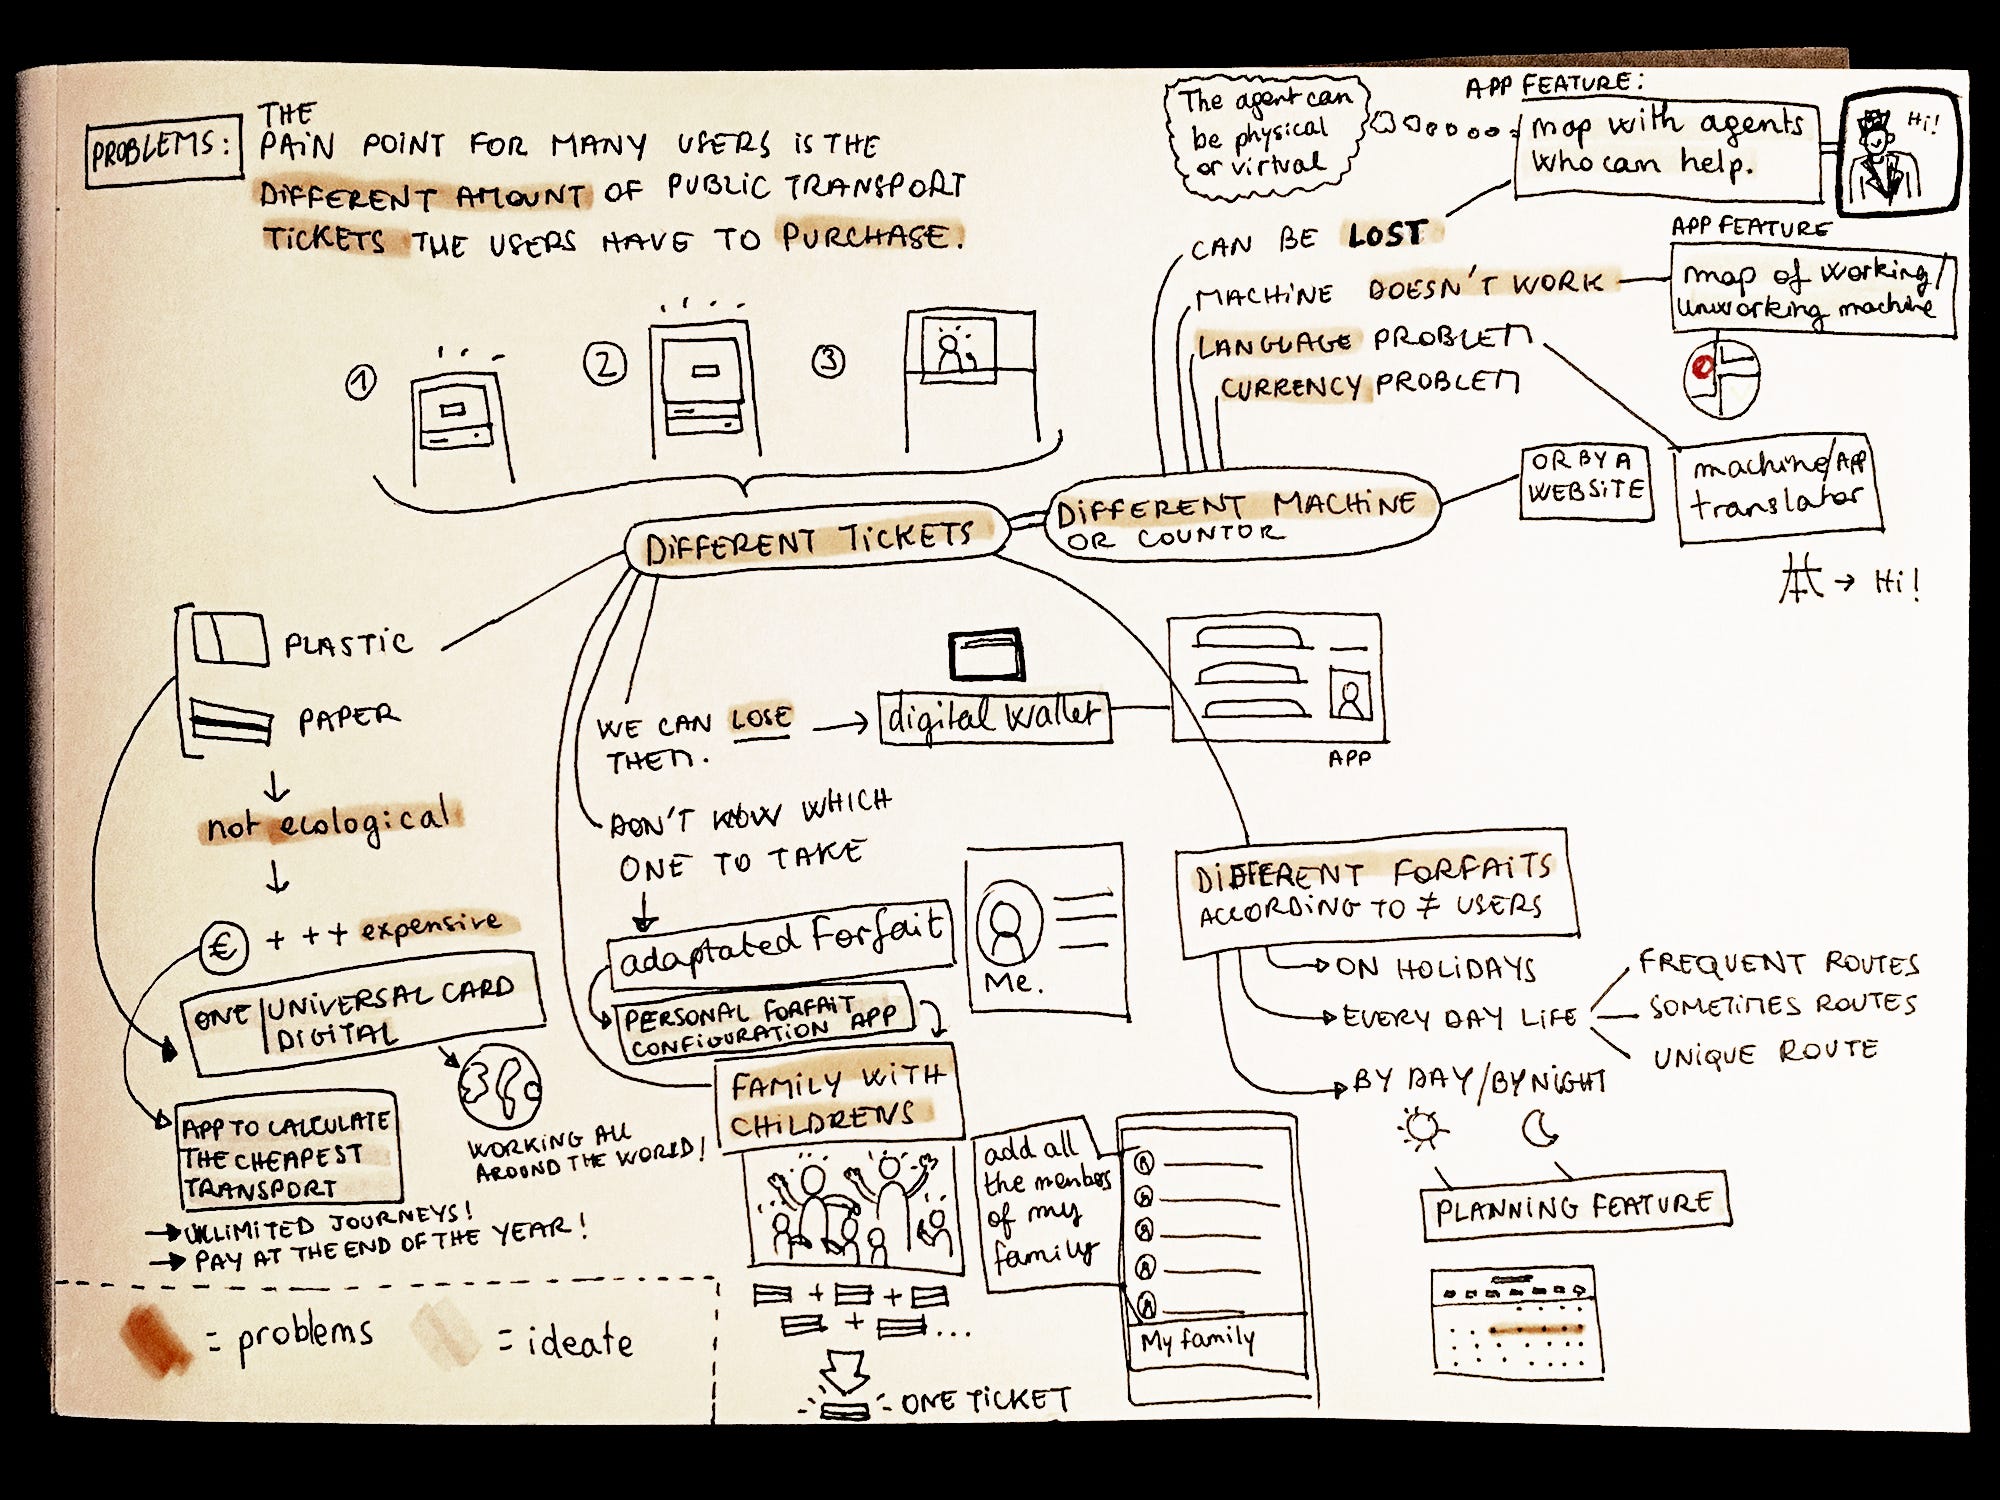 PROBLEMS:
THE
PAIN POINT FOR MANY USERS IS THE
DIFFERENT AMOUNT OF PUBLIC TRANSPORT
TICKETS THE USERS HAVE TO PURCHASE.
The agent can
be physical
or virtual
APP FEATURE:
map with agents
who can help.
Hi!
CAN BE LOST
APP FEATURE
MACHINE DOESN'T WORK
map of working/
unworking machine
LANGUAGE PROBLEM
CURRENCY PROBLEM
1
2
3
OR BY A
WEBSITE
machine/APP
translator
→ Hi!
DIFFERENT TICKETS
DIFFERENT MACHINE
OR COUNTOR
PLASTIC
PAPER
not ecological
€ + + + expensive
ONE UNIVERSAL CARD
DIGITAL
WORKING ALL
AROUND THE WORLD!
APP TO CALCULATE
THE CHEAPEST
TRANSPORT
→ UNLIMITED JOURNEYS!
→ PAY AT THE END OF THE YEAR!
WE CAN LOSE
THEM.
digital wallet
APP
DON'T KNOW WHICH
ONE TO TAKE
adaptated Forfait
PERSONAL FORFAIT
CONFIGURATION APP
Me.
FAMILY WITH
CHILDRENS
add all
the members
of my
family
My family
+ +
+ ...
ONE TICKET
DIFFERENT FORFAITS
ACCORDING TO ≠ USERS
ON HOLIDAYS
EVERY DAY LIFE
FREQUENT ROUTES
SOMETIMES ROUTES
UNIQUE ROUTE
BY DAY/BY NIGHT
PLANNING FEATURE
= problems
= ideate